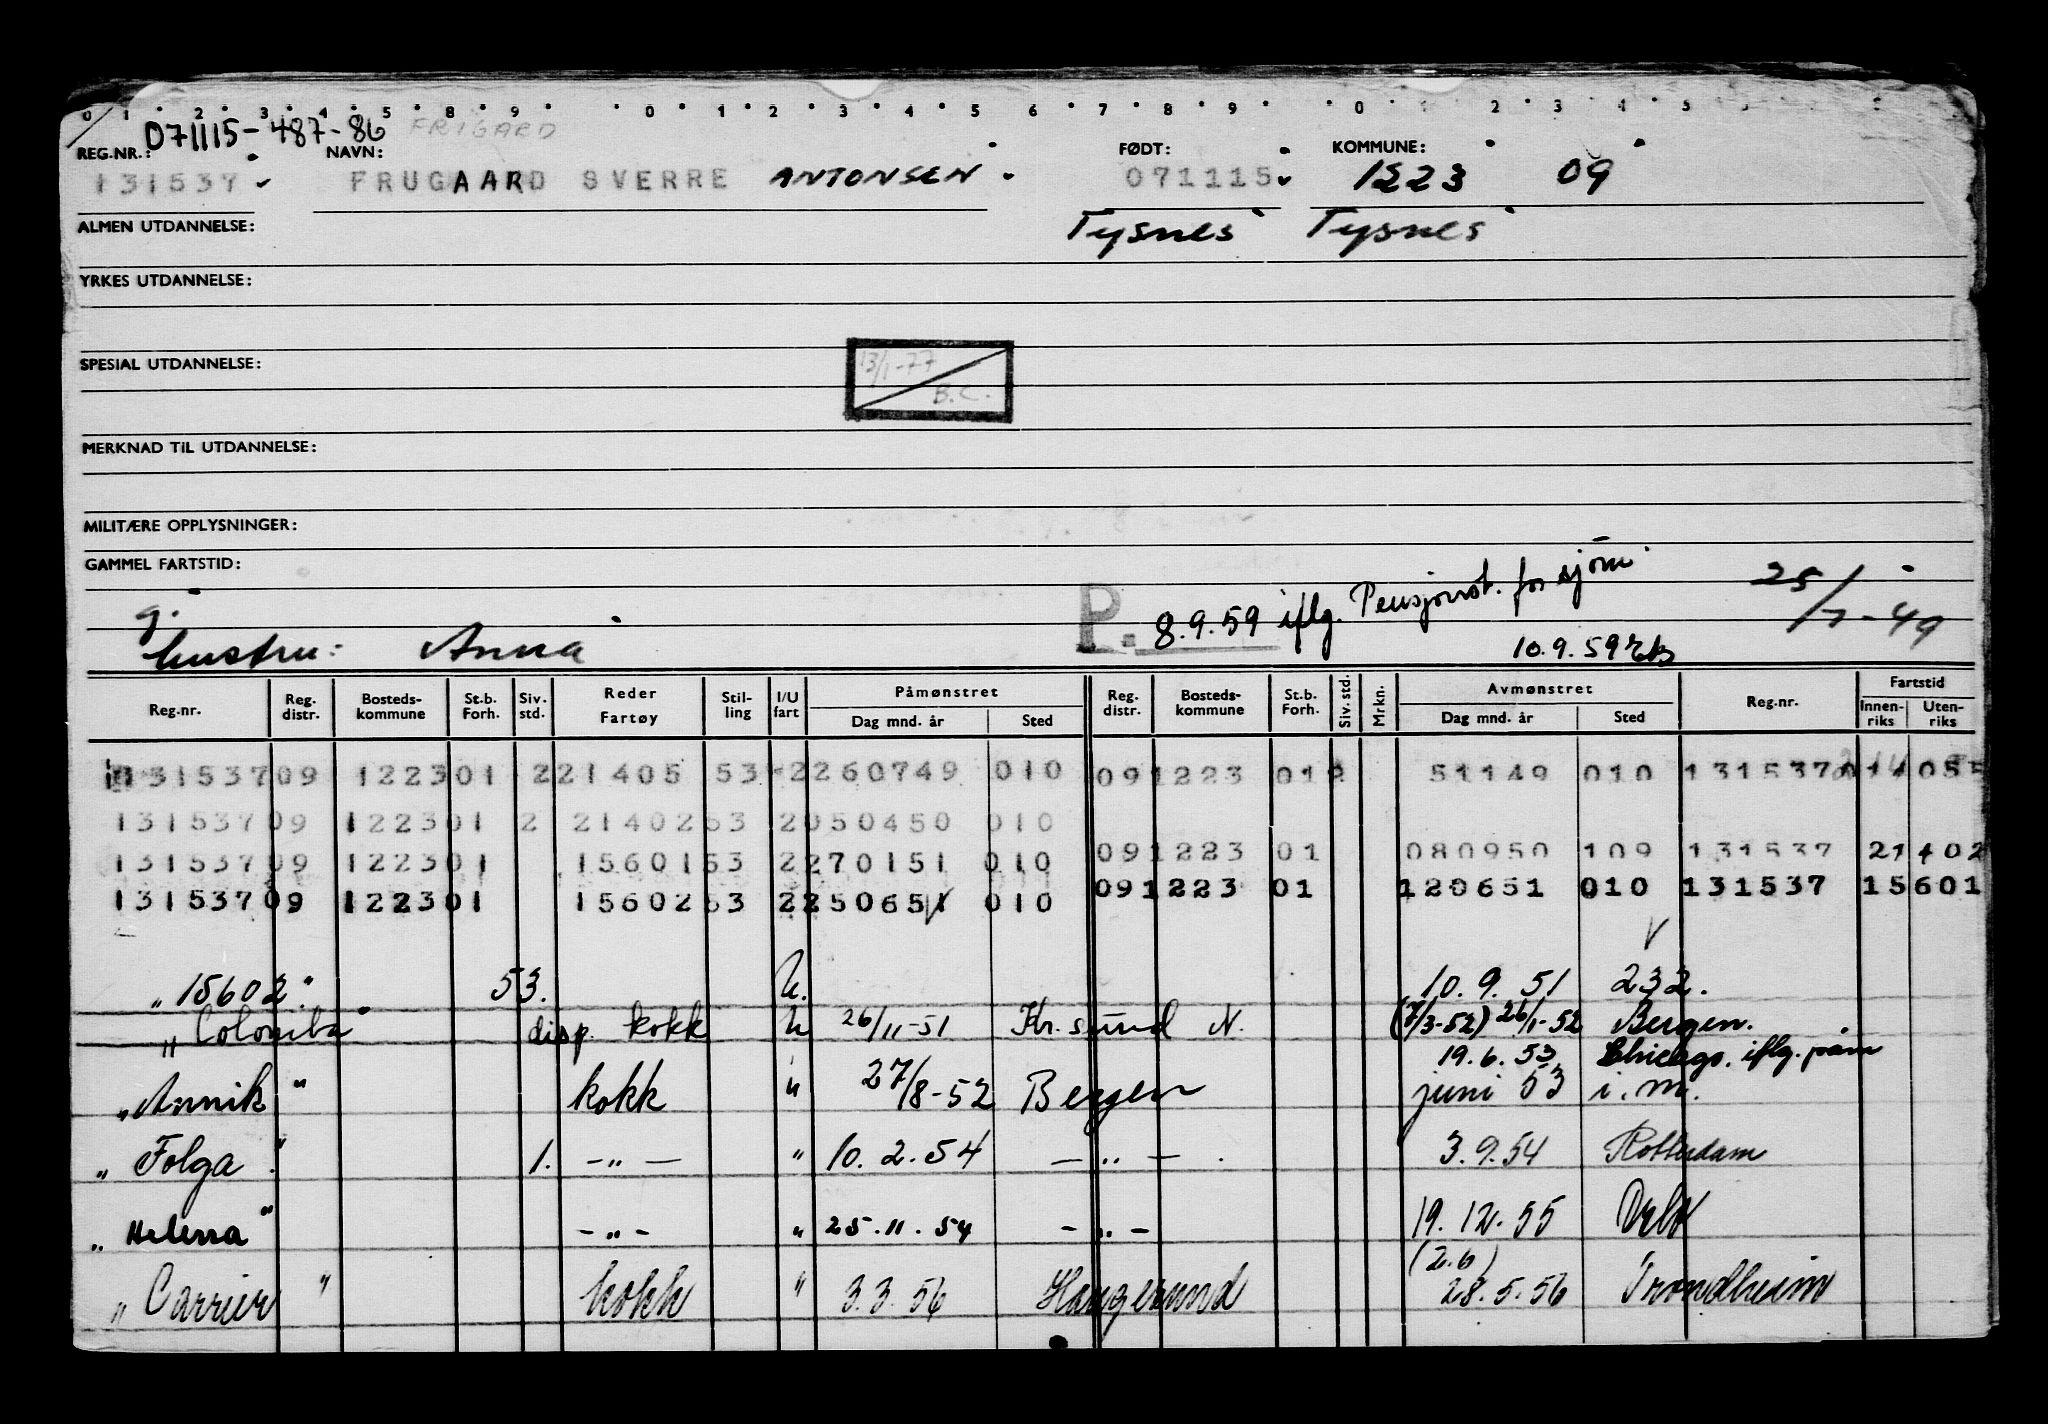 0 1 2 3 4 5 8 9 0 1 2 3 4 5 6 7 8 9 0 1 2 3 4 5
071115-487-86 FRIGARD
REG.NR.: NAVN: FØDT: KOMMUNE:
131537 FRUGAARD SVERRE ANTONSEN 071115 1223 09
ALMEN UTDANNELSE: Tysnes Tysnes
YRKES UTDANNELSE:
SPESIAL UTDANNELSE: 13/1-77
B.C.
MERKNAD TIL UTDANNELSE:
MILITÆRE OPPLYSNINGER:
GAMMEL FARTSTID:
g. P. 8.9.59 iflg. Pensjonst. for sjøm. 25/7-49
hustru: Anna 10.9.59
Reg.nr. Reg. distr. Bosteds-kommune St.b. Forh. Siv. std. Reder Fartøy Stil-ling I/U fart Påmønstret Dag mnd. år Sted Reg. distr. Bosteds-kommune St.b. Forh. Siv. std. Mrkn. Avmønstret Dag mnd. år Sted Reg.nr. Fartstid Innen-riks Uten-riks
131537 09 1223 01 2 21405 53 2 260749 010 09 1223 01 2 51149 010 131537
131537 09 1223 01 2 21402 53 2 050450 010
09 1223 01 080950 109 131537 21402
131537 09 1223 01 15601 53 2 270151 010
09 1223 01 120651 010 131537 15601
131537 09 1223 01 15602 53 2 250651 010
"15602" 53. U. 10.9.51 232.
"Colombia" disp. kokk U 26/11-51 Kr.sund N. (7/3-52) 26/1-52 Bergen.
19.6.53 Chicago. iflg. påm
"Annik" kokk " 27/8-52 Bergen juni 53 i.m.
"Folga" 1. -"- " 10.2.54 -"- 3.9.54 Rotterdam
"Helena" -"- " 25.11.54 -"- 19.12.55
(2.6)
"Carrier" kokk " 3.3.56 Haugesund 28.5.56 Trondheim